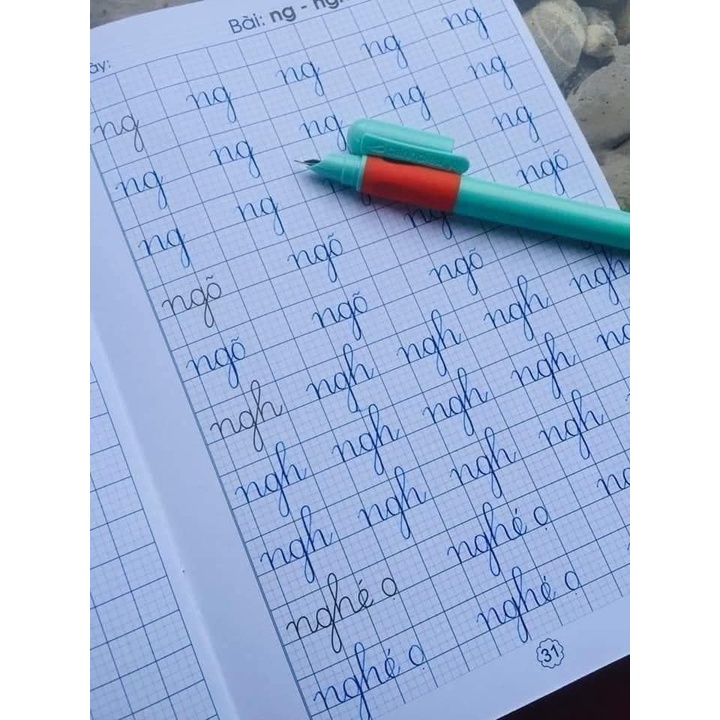 Bài: ng -
ng ng ng ng ng
ng ng ng ng ng
ng ng ng
ngõ ngõ ngõ
ngõ ngõ ngõ
ngh ngh ngh ngh ngh
ngh ngh ngh ngh
ngh ngh ngh ngh
nghé ọ nghé ọ
nghé ọ nghé ọ
31